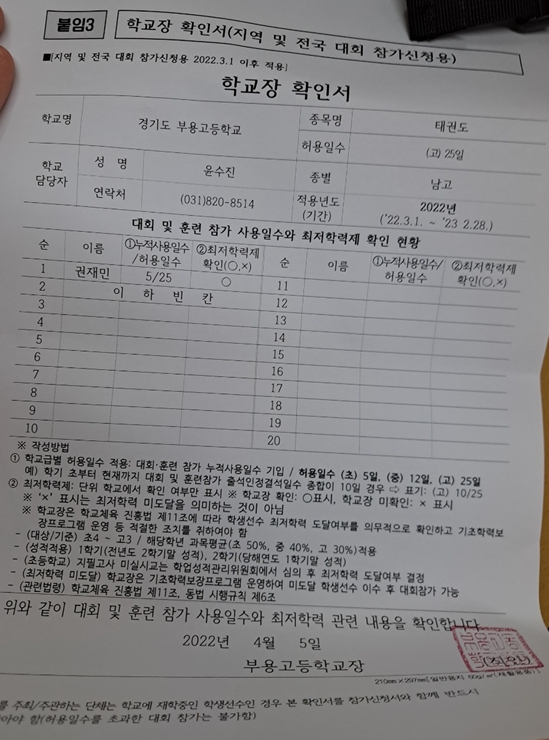 붙임3
학교장 확인서(지역 및 전국 대회 참가신청용)
■[지역 및 전국 대회 참가신청용 2022.3.1 이후 적용]
학교장 확인서
학교명 경기도 부용고등학교 종목명 태권도
허용일수 (고) 25일
학교 담당자 성 명 윤수진 종별 남고
연락처 (031)820-8514 적용년도 (기간) 2022년 ('22.3.1. ~ '23 2.28.)
대회 및 훈련 참가 사용일수와 최저학력제 확인 현황
순 이름 ①누적사용일수/허용일수 ②최저학력제 확인(○,×) 순 이름 ①누적사용일수/허용일수 ②최저학력제 확인(○,×)
1 권재민 5/25 ○ 11
2 이 하 빈 칸 12
3 13
4 14
5 15
6 16
7 17
8 18
9 19
10 20
※ 작성방법
① 학교급별 허용일수 적용: 대회·훈련 참가 누적사용일수 기입 / 허용일수 (초) 5일, (중) 12일, (고) 25일
예) 학기 초부터 현재까지 대회 및 훈련참가 출석인정결석일수 종합이 10일 경우 ⇨ 표기: (고) 10/25
② 최저학력제: 단위 학교에서 확인 여부만 표시 ※ 학교장 확인: ○표시, 학교장 미확인: × 표시
※ '×' 표시는 최저학력 미도달을 의미하는 것이 아님
※ 학교장은 학교체육 진흥법 제11조에 따라 학생선수 최저학력 도달여부를 의무적으로 확인하고 기초학력보
장프로그램 운영 등 적절한 조치를 취하여야 함
- (대상/기준) 초4 ~ 고3 / 해당학년 과목평균(초 50%, 중 40%, 고 30%)적용
- (성적적용) 1학기(전년도 2학기말 성적), 2학기(당해연도 1학기말 성적)
- (초등학교) 지필고사 미실시교는 학업성적관리위원회에서 심의 후 최저학력 도달여부 결정
- (최저학력 미도달) 학교장은 기초학력보장프로그램 운영하여 미도달 학생선수 이수 후 대회참가 가능
- (관련법령) 학교체육 진흥법 제11조, 동법 시행규칙 제6조
위와 같이 대회 및 훈련 참가 사용일수와 최저학력 관련 내용을 확인합니다.
2022년 4월 5일
부용고등학교장 (직인)
210㎜×297㎜[일반용지 60g/㎡(재활용품)]
를 주최/주관하는 단체는 학교에 재학중인 학생선수인 경우 본 확인서를 참가신청서와 함께 반드시
아야 함(허용일수를 초과한 대회 참가는 불가함)